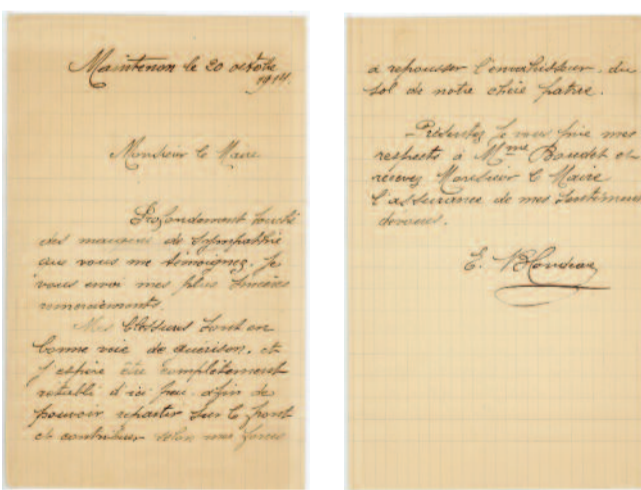 Maintenon le 20 octobre
1914.
Monsieur le Maire
Profondement touché
des marques de sympathie
que vous me témoignez, je
vous envoi mes plus sincères
remerciements.
Mes blessures sont en
bonne voie de guérison, et
j'espère être complètement
rétabli d'ici peu afin de
pouvoir repartir sur le front
et contribuer selon mes forces
a repousser l'envahisseur du
sol de notre chère patrie.
Présentez je vous prie mes
respects à Mme Baudet et
recevez Monsieur le Maire
l'assurance de mes sentiments
dévoués.
E. Blondeau